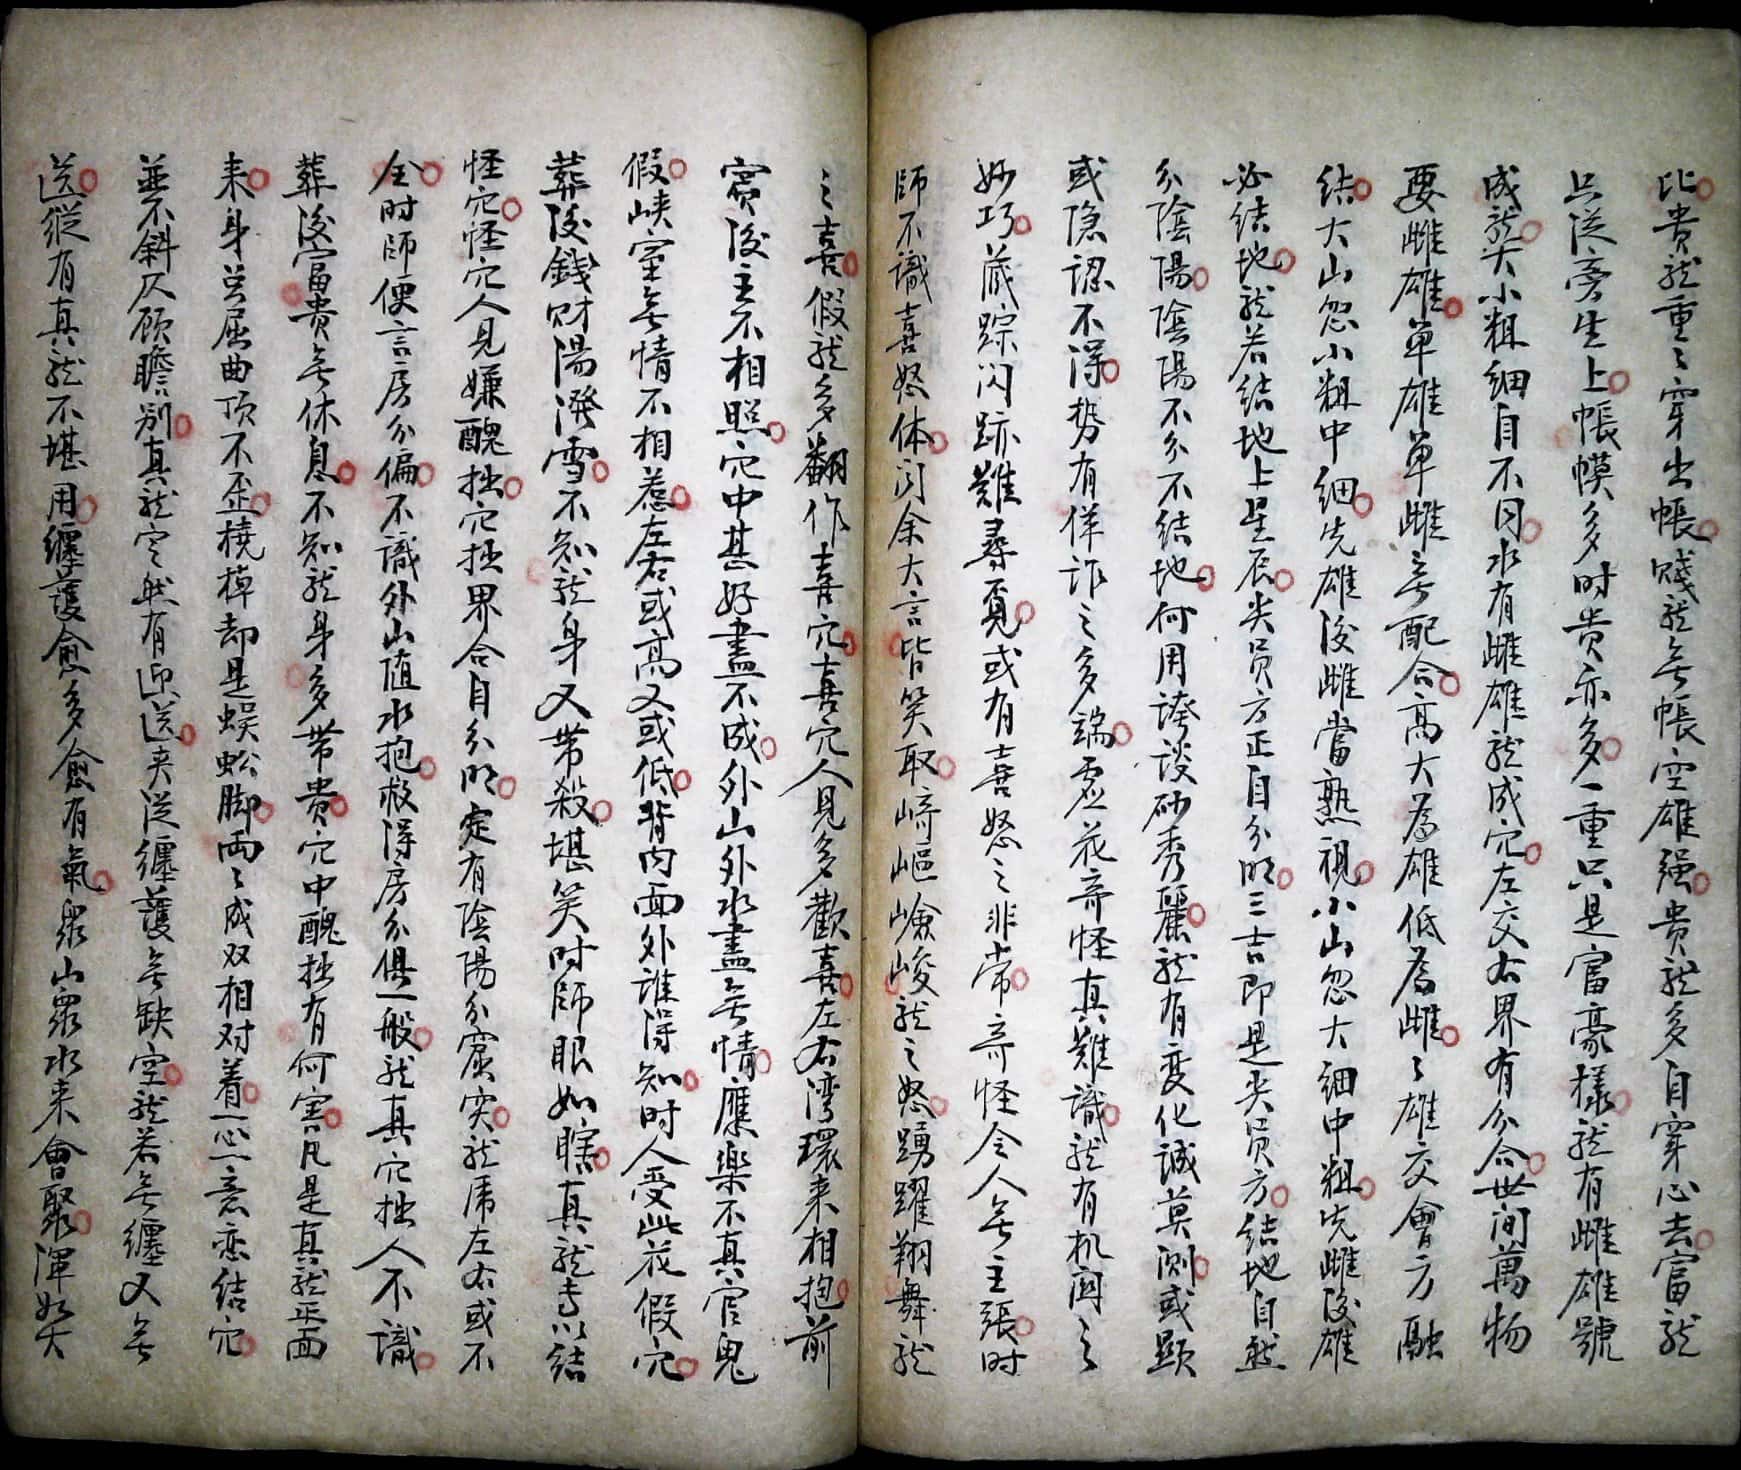 比贵龍重〻穿出帳賤龍無帳空雄强贵龍多自穿心去富龍
只従旁生上帳幙多时贵亦多一重只是富豪樣龍有雌雄號
成龍大小粗细自不同水有雌雄龍成穴左交右界有分合世间萬物
要雌雄单雄单雌無配合高大為雄低為雌〻雄交會方融
结大山忽小粗中细先雄後雌當熟視小山忽大细中粗先雌後雄
必结地龍若结地上星辰尖员方正自分明三吉即是尖员方结地自然
分陰陽陰陽不分不结地何用誇谈砂秀麗龍有变化誠莫测或顕
或隐認不得势有佯诈之多端虚花奇怪真難識龍有机関之
妙巧藏踪闪跡難尋覓或有喜怒之非常奇怪令人無主張时
師不識喜怒体闻余大言皆笑取崎嶇嶮峻龍之怒踴躍翔舞龍
之喜假龍多翻作喜穴喜穴人見多歡喜左右湾環来相抱前
賓後主不相照穴中甚好盡不成外山外水盡無情應樂不真官鬼
假峡室無情不相惹左右或高又或低背内面外谁得知时人受此花假穴
葬後錢财湯潑雪不知龍身又带殺堪笑时師眼如瞎真龍专以结
怪穴怪穴人見嫌醜拙穴拙界合自分明定有陰陽分窟突龍虎左右或不
全时師便言房分偏不識外山值水抱救得房分俱一般龍真穴拙人不識
葬後富贵無休息不知龍身多带贵穴中醜拙有何害凡是真龍正面
来身必屈曲顶不歪橈棹却是蜈蚣脚两〻成双相对着一心一意恋结穴
並不斜仄顾瞻别真龍定然有迎送夹従纏護無缺空龍若無纏又無
送縱有真龍不堪用纏護愈多愈有氣衆山衆水来會聚渾如大